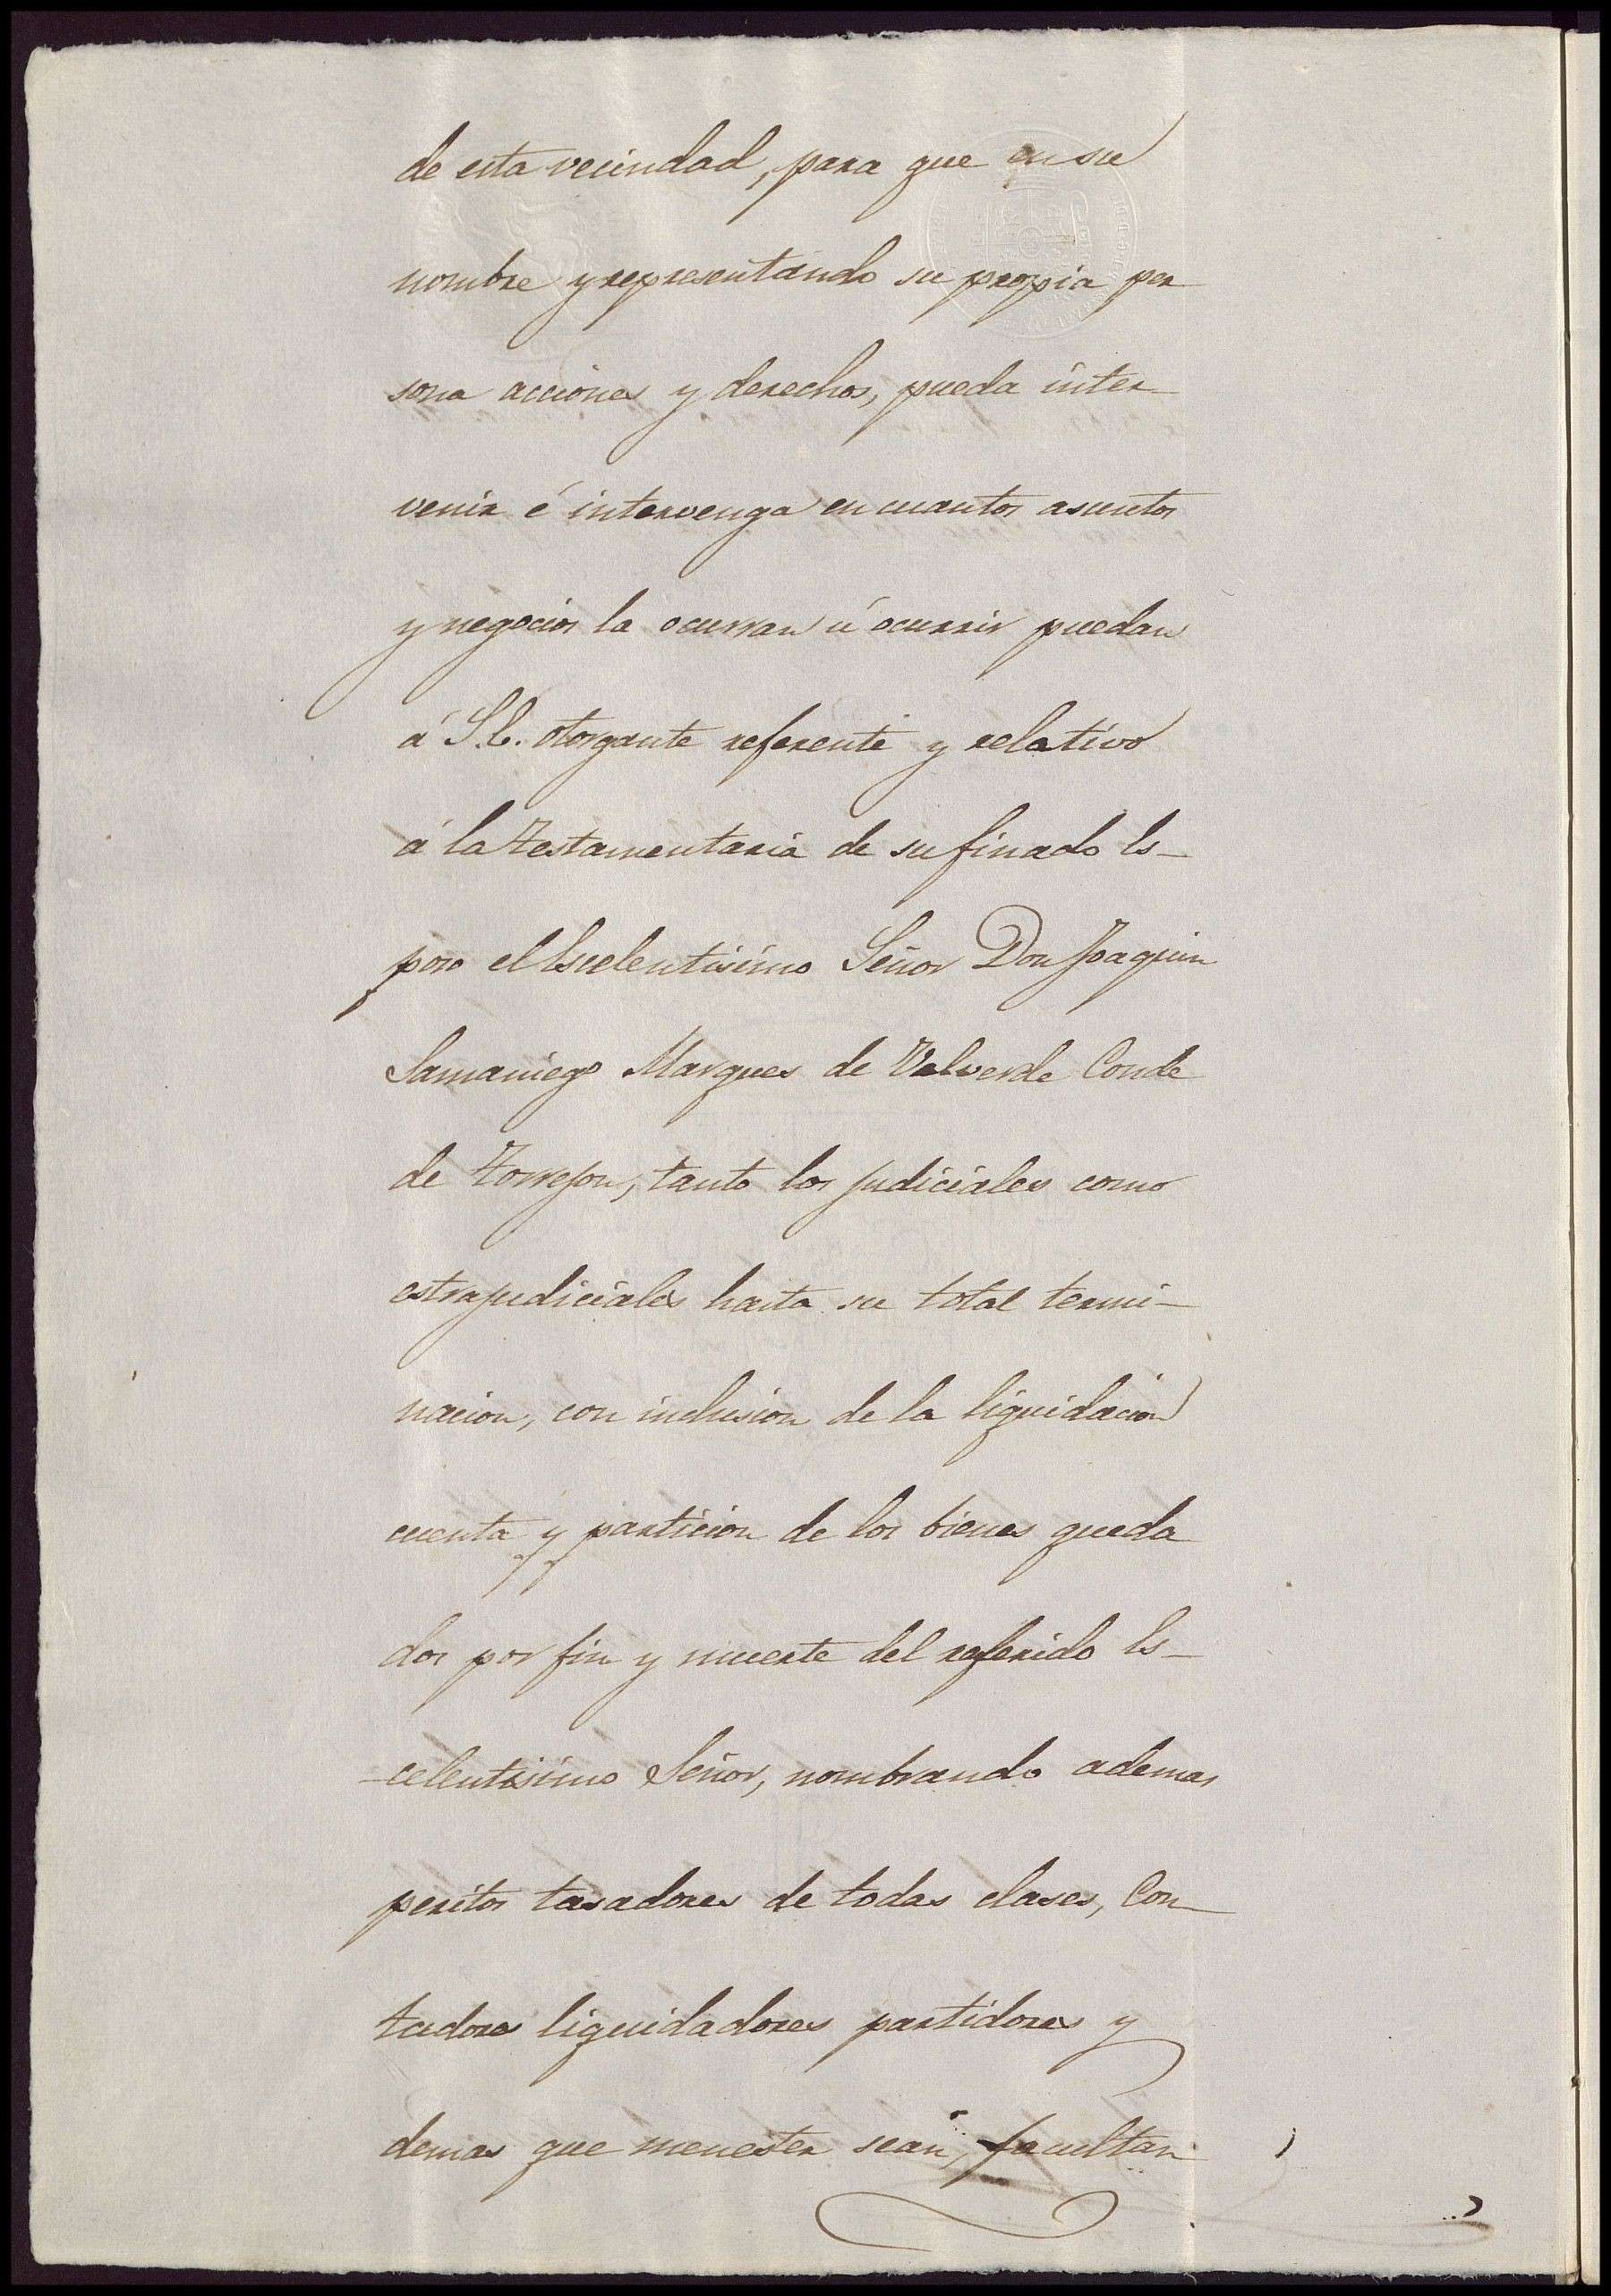 de esta vecindad, para que en su
nombre y representando su propia per
sona acciones y derechos, pueda inter-
venir é intervenga en cuantos asuntos
y negocios la ocurran ú ocurrir puedan
á S.E. otorgante referente y relativo
á la Testamentaria de su finado Es-
poso el Escelentisimo Señor Don Joaquin
Samaniego Marques de Valverde Conde
de Torrejon, tanto los judiciales como
estrajudiciales hasta su total termi-
nacion, con inclusion de la liquidacion
cuenta y particion de los bienes queda
dos por fin y muerte del referido Es-
-celentisimo Señor, nombrando ademas
peritos tasadores de todas clases, Con-
tadores liquidadores partidores y
demas que menester sean, facultan